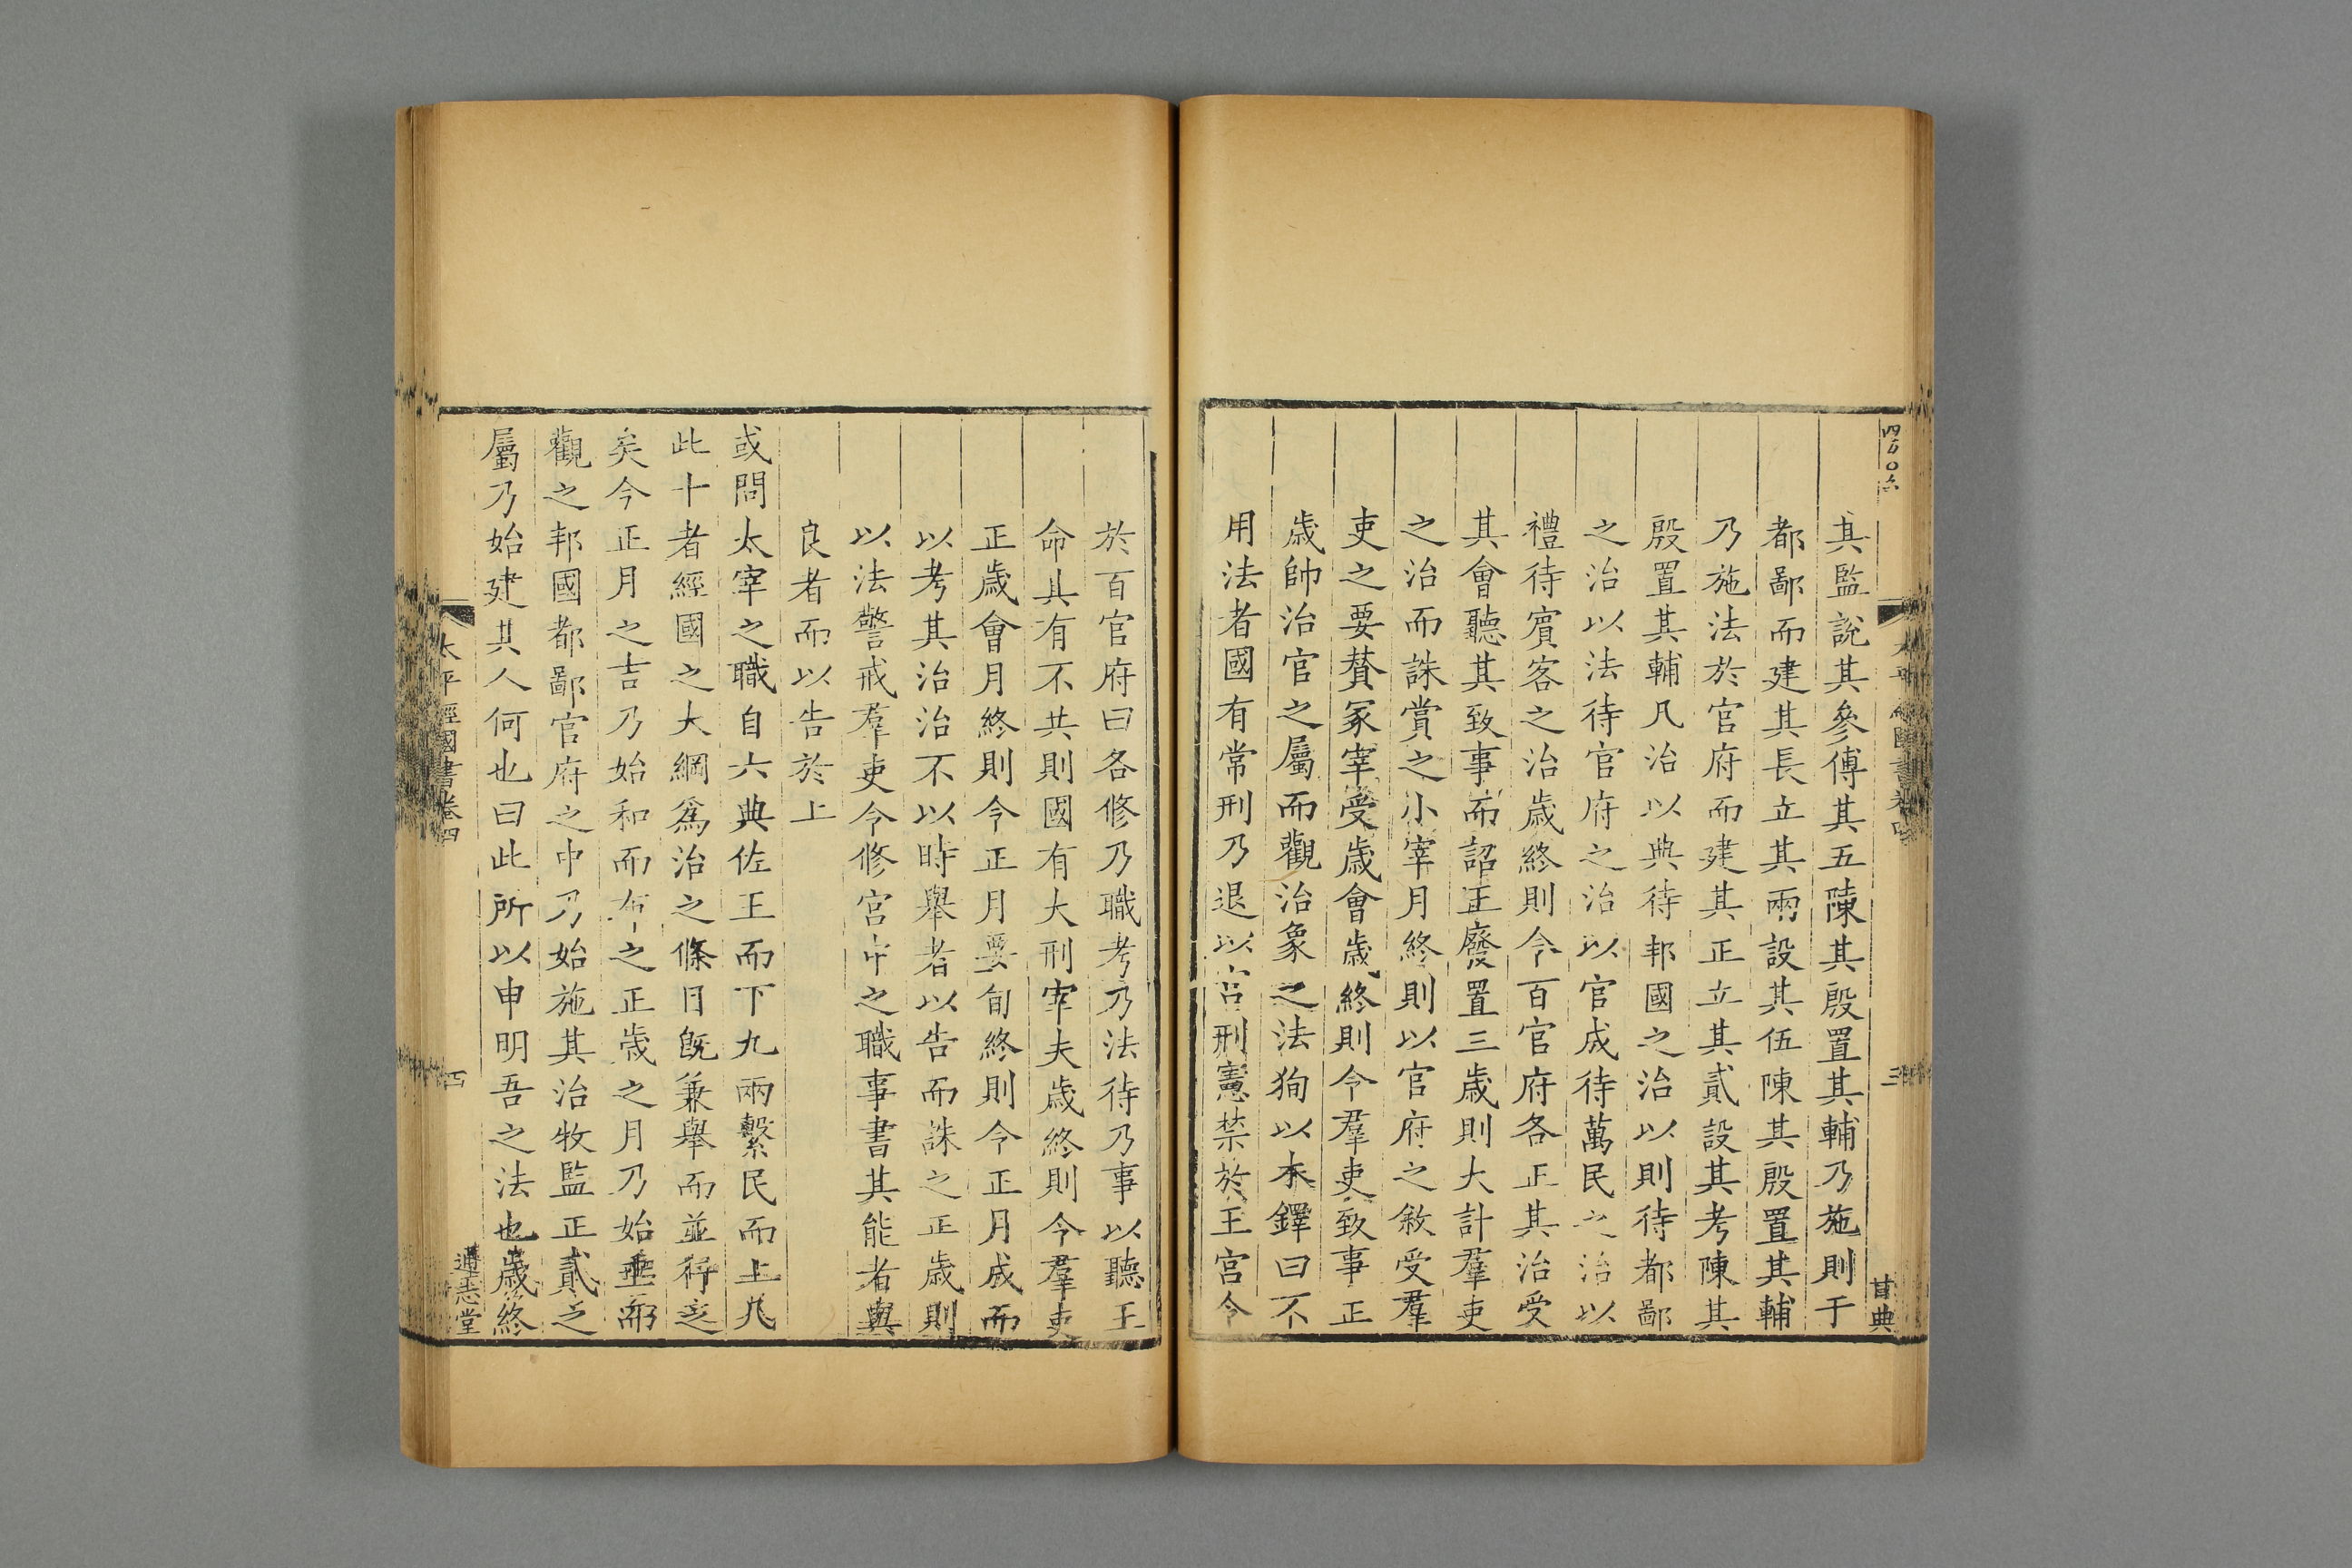 其監說其參傅其五陳其殷置其輔乃施則于
都鄙而建其長立其兩設其伍陳其殷置其輔
乃施法於官府而建其正立其貳設其考陳其
殷置其輔凡治以典待邦國之治以則待都鄙
之治以法待官府之治以官成待萬民之治以
禮待賓客之治歳終則令百官府各正其治受
其會聽其致事而詔王廢置三歳則大計羣吏
之治而誅賞之小宰月終則以官府之敘受羣
吏之要贊冡宰受歳會歳終則令羣吏致事正
歳帥治官之屬而觀治象之法狥以木鐸曰不
用法者國有常刑乃退以宮刑憲禁於王宮令
於百官府曰各修乃職考乃法待乃事以聽王
命其有不共則國有大刑宰夫歳終則令羣吏
正歳會月終則令正月要旬終則令正月成而
以考其治治不以時舉者以告而誅之正歳則
以法警戒羣吏令修宮中之職事書其能者與
良者而以告於上
或問太宰之職自六典佐王而下九兩繫民而上凡
此十者經國之大綱爲治之條目旣兼舉而並行之
矣今正月之吉乃始和而布之正歳之月乃始垂而
觀之邦國都鄙官府之中乃始施其治牧監正貳之
屬乃始建其人何也曰此所以申明吾之法也歳終
太平經國書卷四
四
通志堂
四百〇六
三
甘典